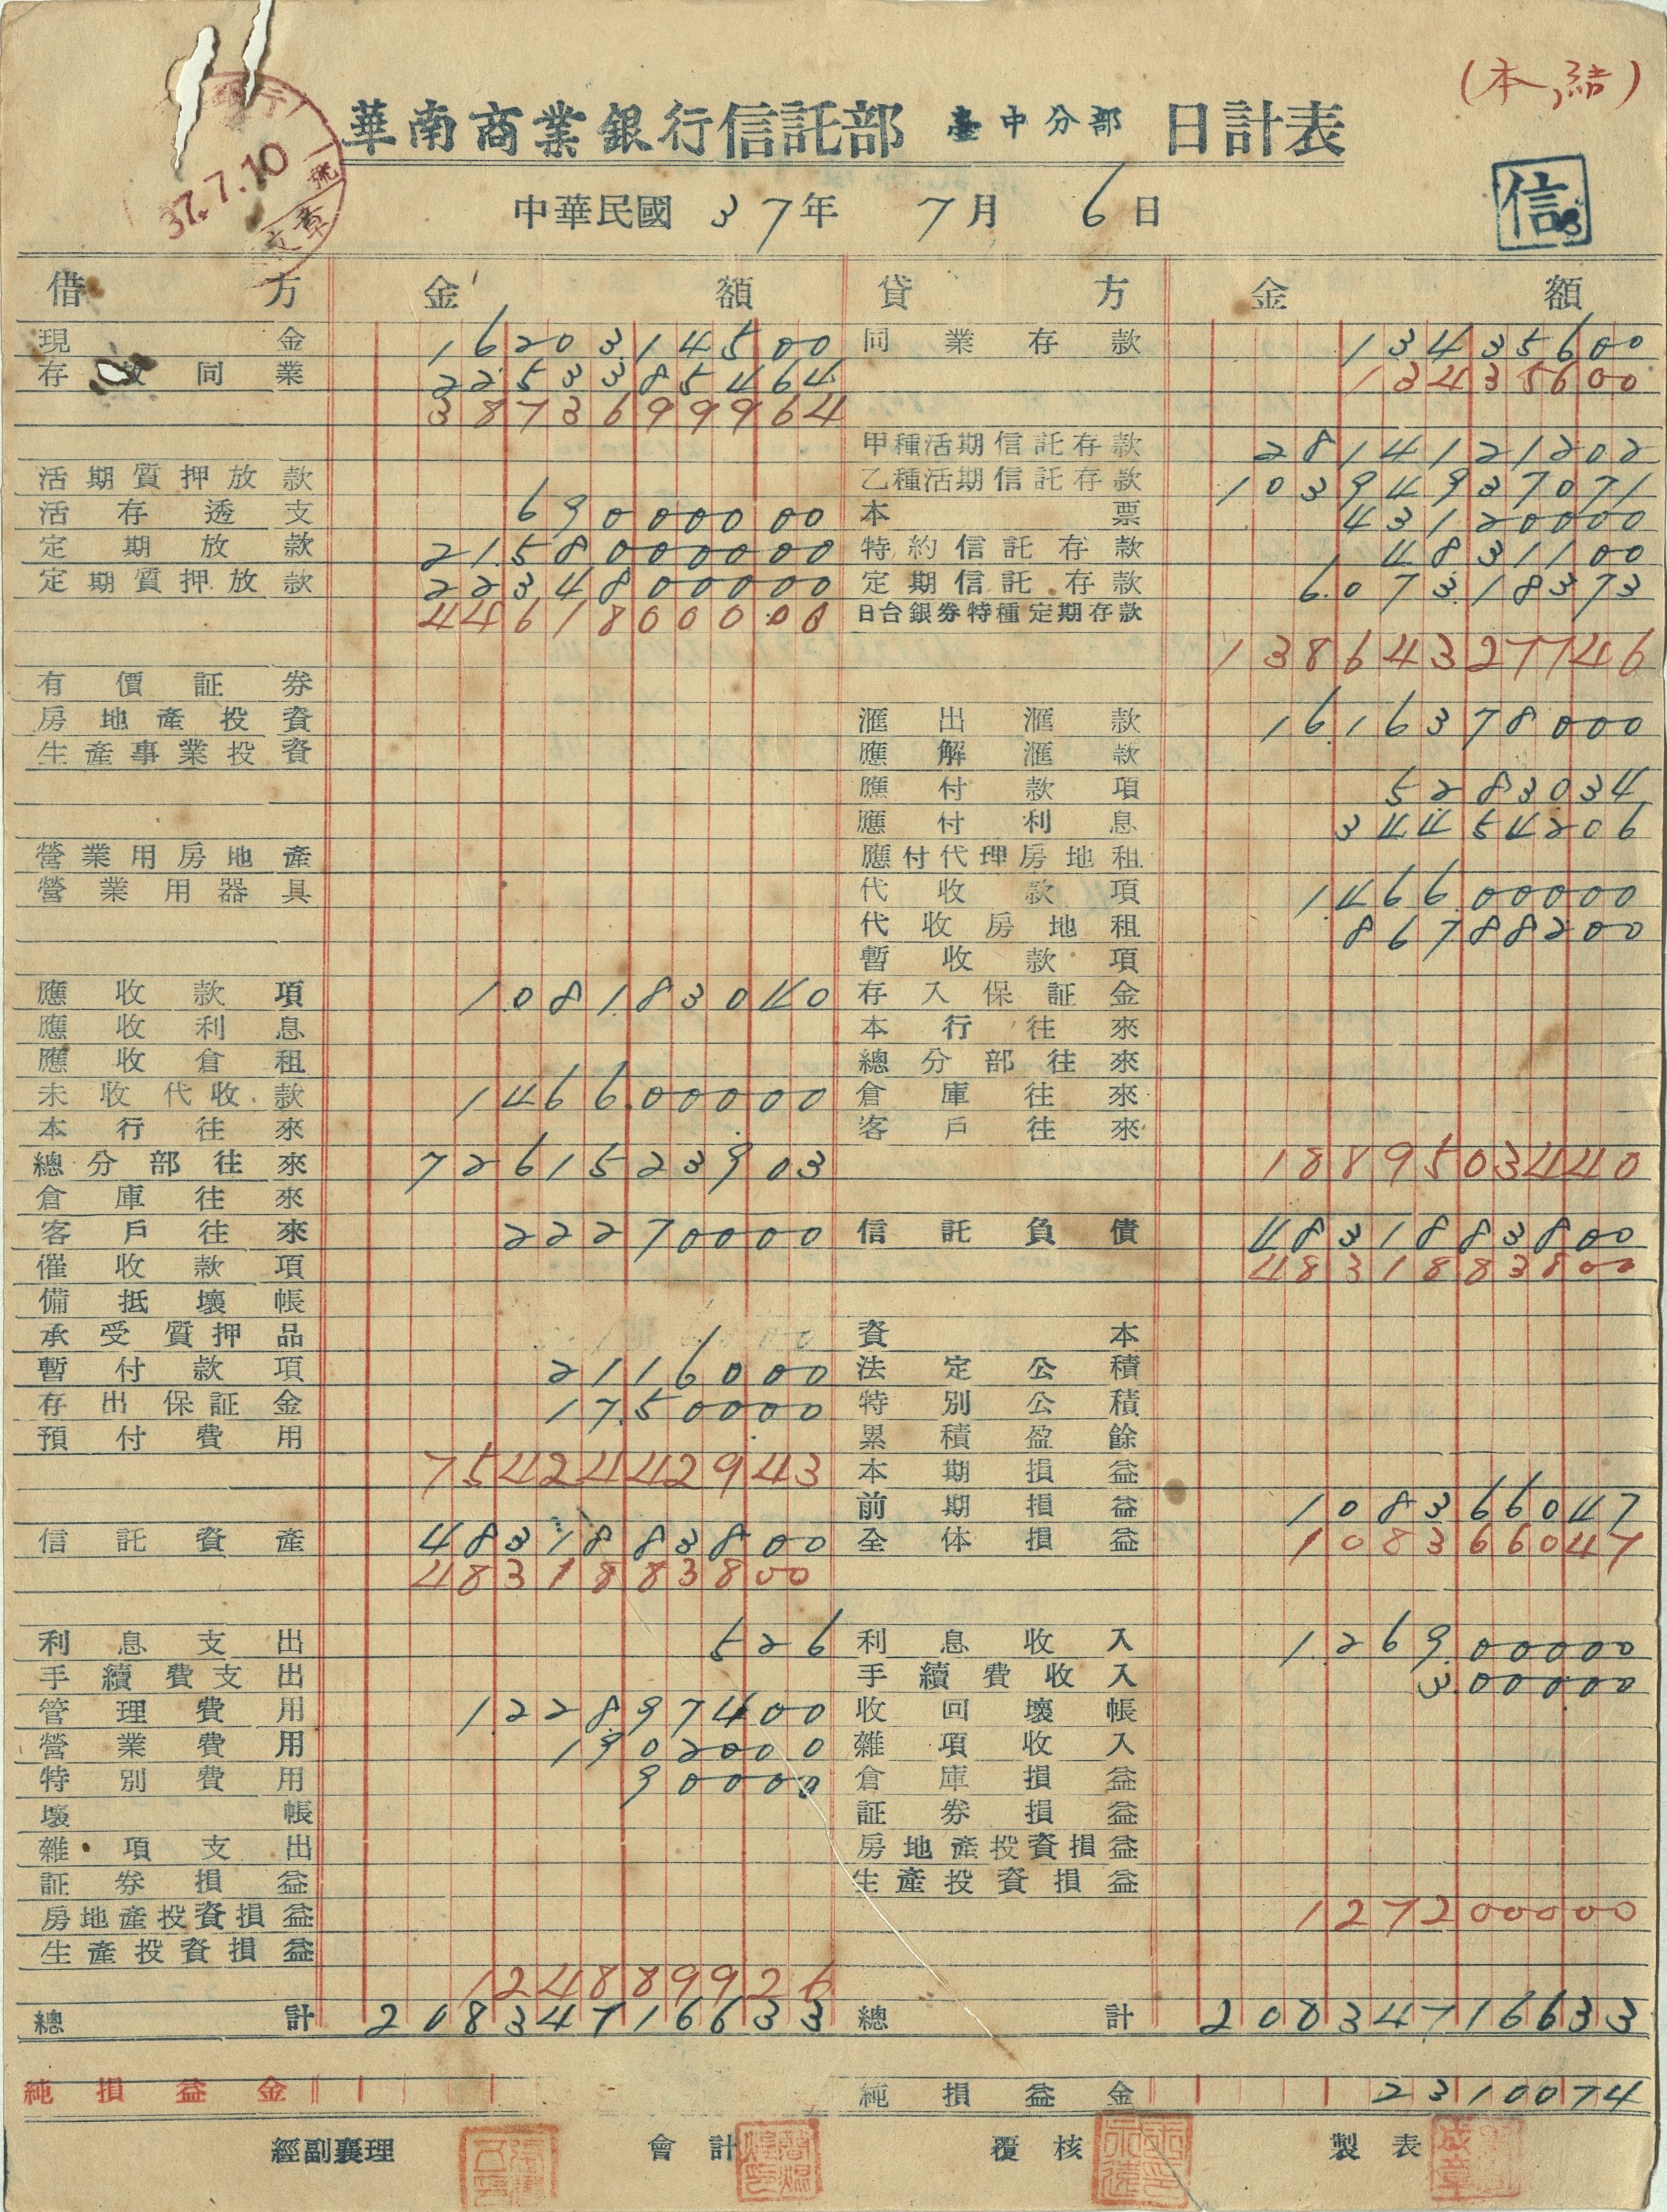 (本結)
華南商業銀行信託部 臺中分部 日計表
37.7.10
文章
中華民國 37年 7月 6日
信
借方 金額 貸方 金額
現金 1620314500 同業存款 13435600
存放同業 2253385464 13435600
3873699964
甲種活期信託存款 2814121202
活期質押放款 乙種活期信託存款 10394937071
活存透支 69000000 本票 43120000
定期放款 2158000000 特約信託存款 4831100
定期質押放款 2234800000 定期信託存款 607318373
4461800000 日台銀券特種定期存款
13864327746
有價証券
房地產投資 滙出滙款 1616378000
生產事業投資 應解滙款
應付款項 5283034
應付利息 34454206
營業用房地產 應付代理房地租
營業用器具 代收款項 146600000
代收房地租 86788200
暫收款項
應收款項 108183040 存入保証金
應收利息 本行往來
應收倉租 總分部往來
未收代收款 146600000 倉庫往來
本行往來 客戶往來
總分部往來 7261523903 1889503440
倉庫往來
客戶往來 22270000 信託負債 4831883800
催收款項 4831883800
備抵壞帳
承受質押品 資本
暫付款項 2116000 法定公積
存出保証金 1750000 特別公積
預付費用 累積盈餘
7542442943 本期損益
前期損益 108366047
信託資產 4831883800 全体損益 108366047
4831883800
利息支出 526 利息收入 126900000
手續費支出 手續費收入 300000
管理費用 122897400 收回壞帳
營業費用 1902000 雜項收入
特別費用 90000 倉庫損益
壞帳 証券損益
雜項支出 房地產投資損益
証券損益 生產投資損益
房地產投資損益 127200000
生產投資損益
124889926
總計 20834716633 總計 20834716633
純損益金 純損益金 2310074
經副襄理 會計 覆核 製表